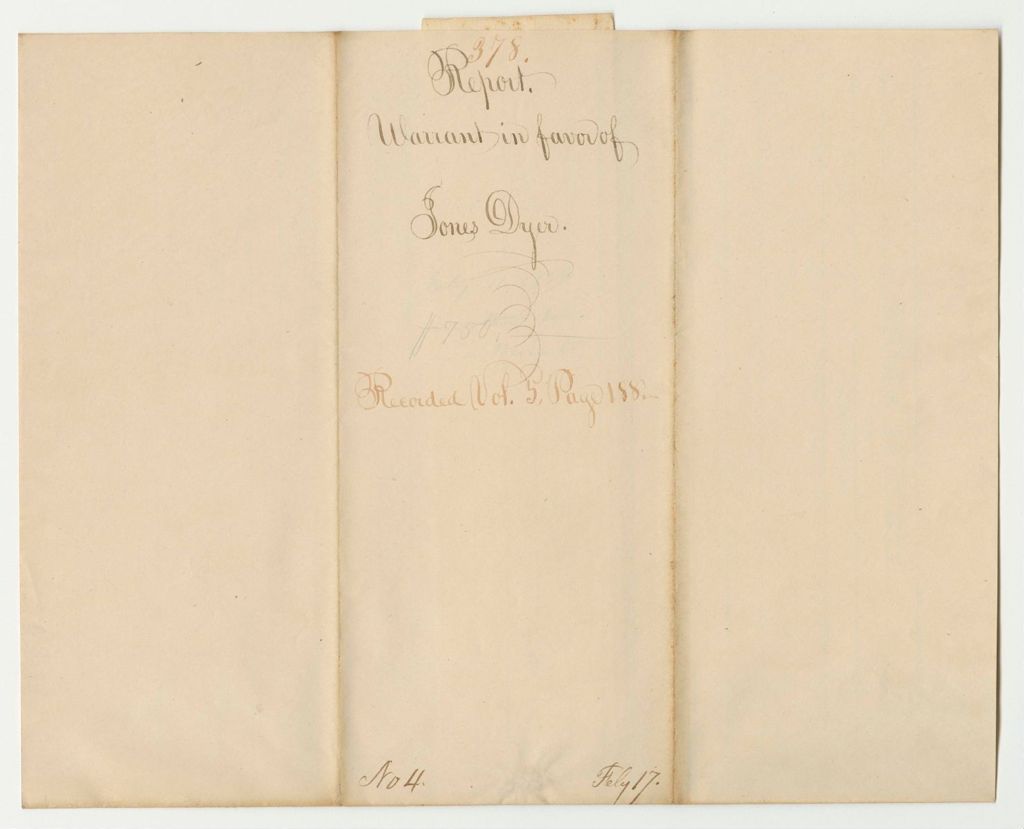 378.
Report.
Warrant in favor of
Jones Dyer.
$750
Recorded Vol. 5, Page 188
No 4.
Feby 17.